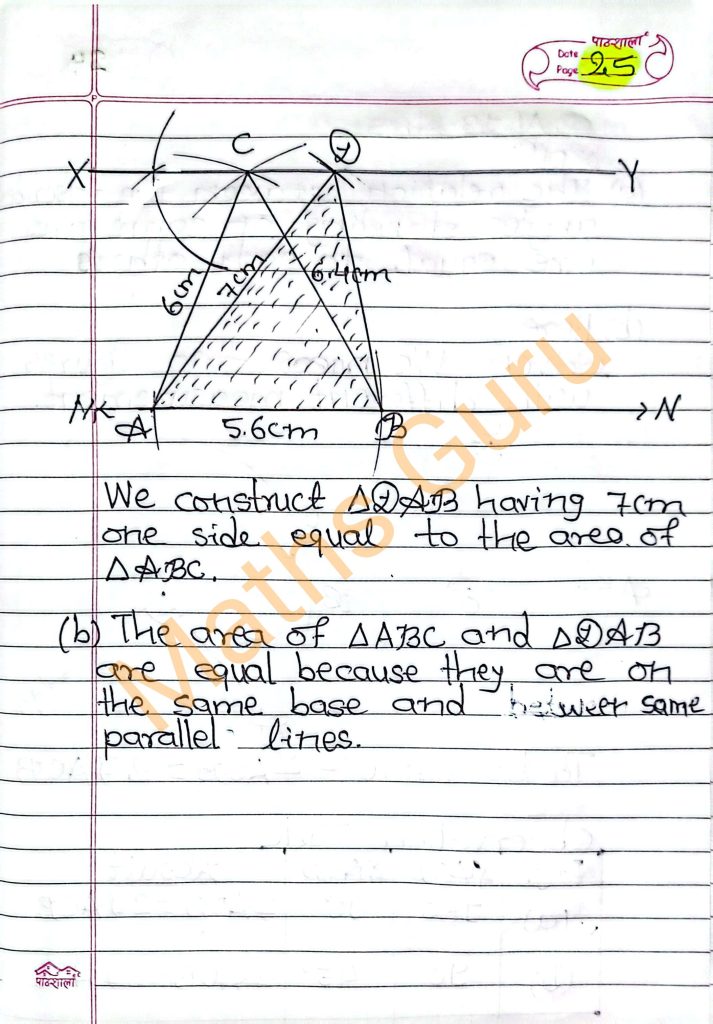 पाठशाला
Date
Page 25
C D
X Y
6cm 7cm 6.4cm
N N
A 5.6cm B
We construct △DAB having 7cm
one side equal to the area of
△ABC.
(b) The area of △ABC and △DAB
are equal because they are on
the same base and between same
parallel lines.
Maths Guru
पाठशाला